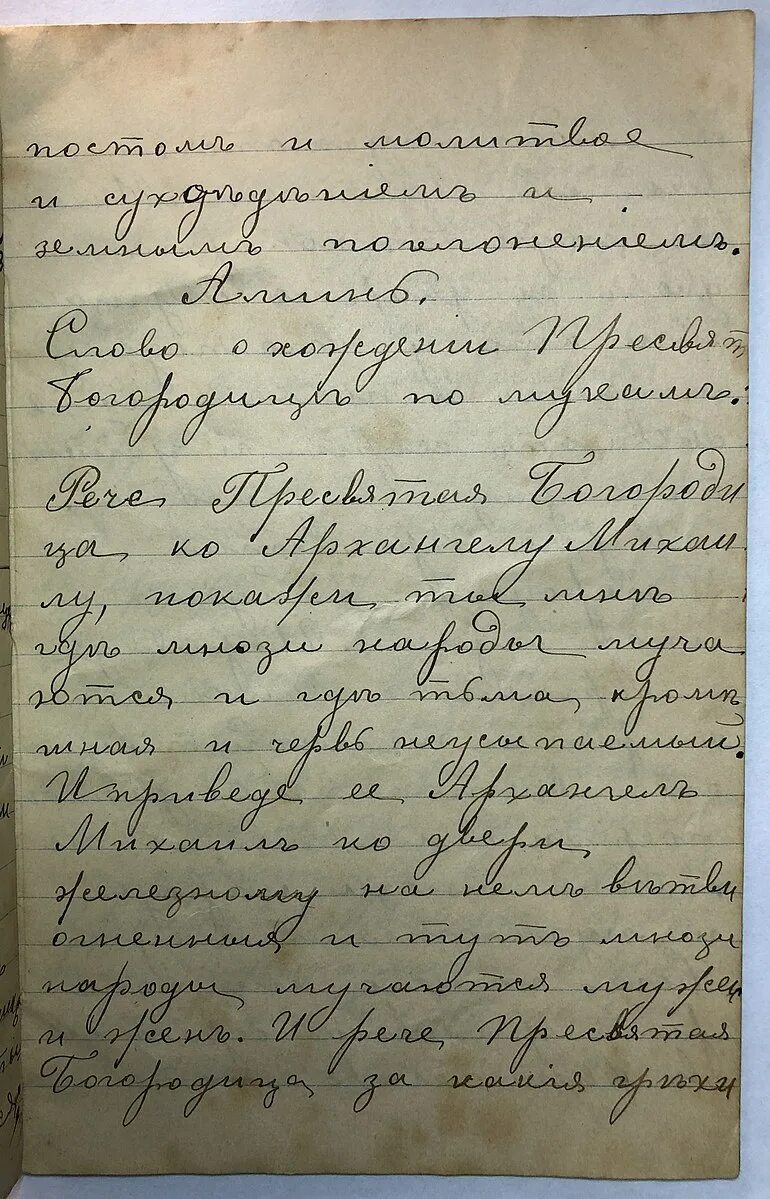 постомъ и молитвое
и сухоѣдѣніемъ и
земнымъ поклоненіемъ.
Аминь.
Слово о хожденіи Пресвят
Богородицѣ по мукамъ.
Рече Пресвятая Богороди
ца ко Архангелу Михаи
лу, покажи ты мнѣ
гдѣ мнози народы муча
ются и гдѣ тьма кромѣ
шная и червь неусыпаемый.
И приведе ее Архангелъ
Михаилъ ко двери
железному на немъ вѣтви
огненныя и тутъ мнози
народы мучаются мужей
и женъ. И рече Пресвятая
Богородица за какія грѣхи